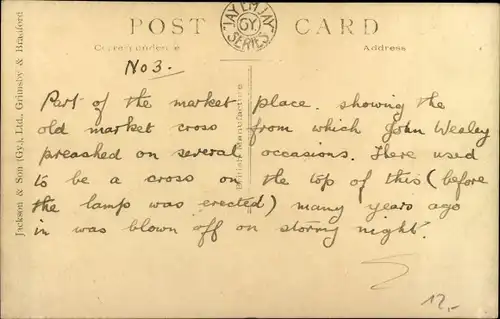 POST CARD
JAY EM JAY GY. SERIES
Correspondence
Address
Jackson & Son (Gy.), Ltd., Grimsby & Bradford
British Manufacture
No 3.
Part of the market place. showing the
old market cross from which John Wesley
preached on several occasions. There used
to be a cross on the top of this (before
the lamp was erected) many years ago
in was blown off on stormy night.
12,-